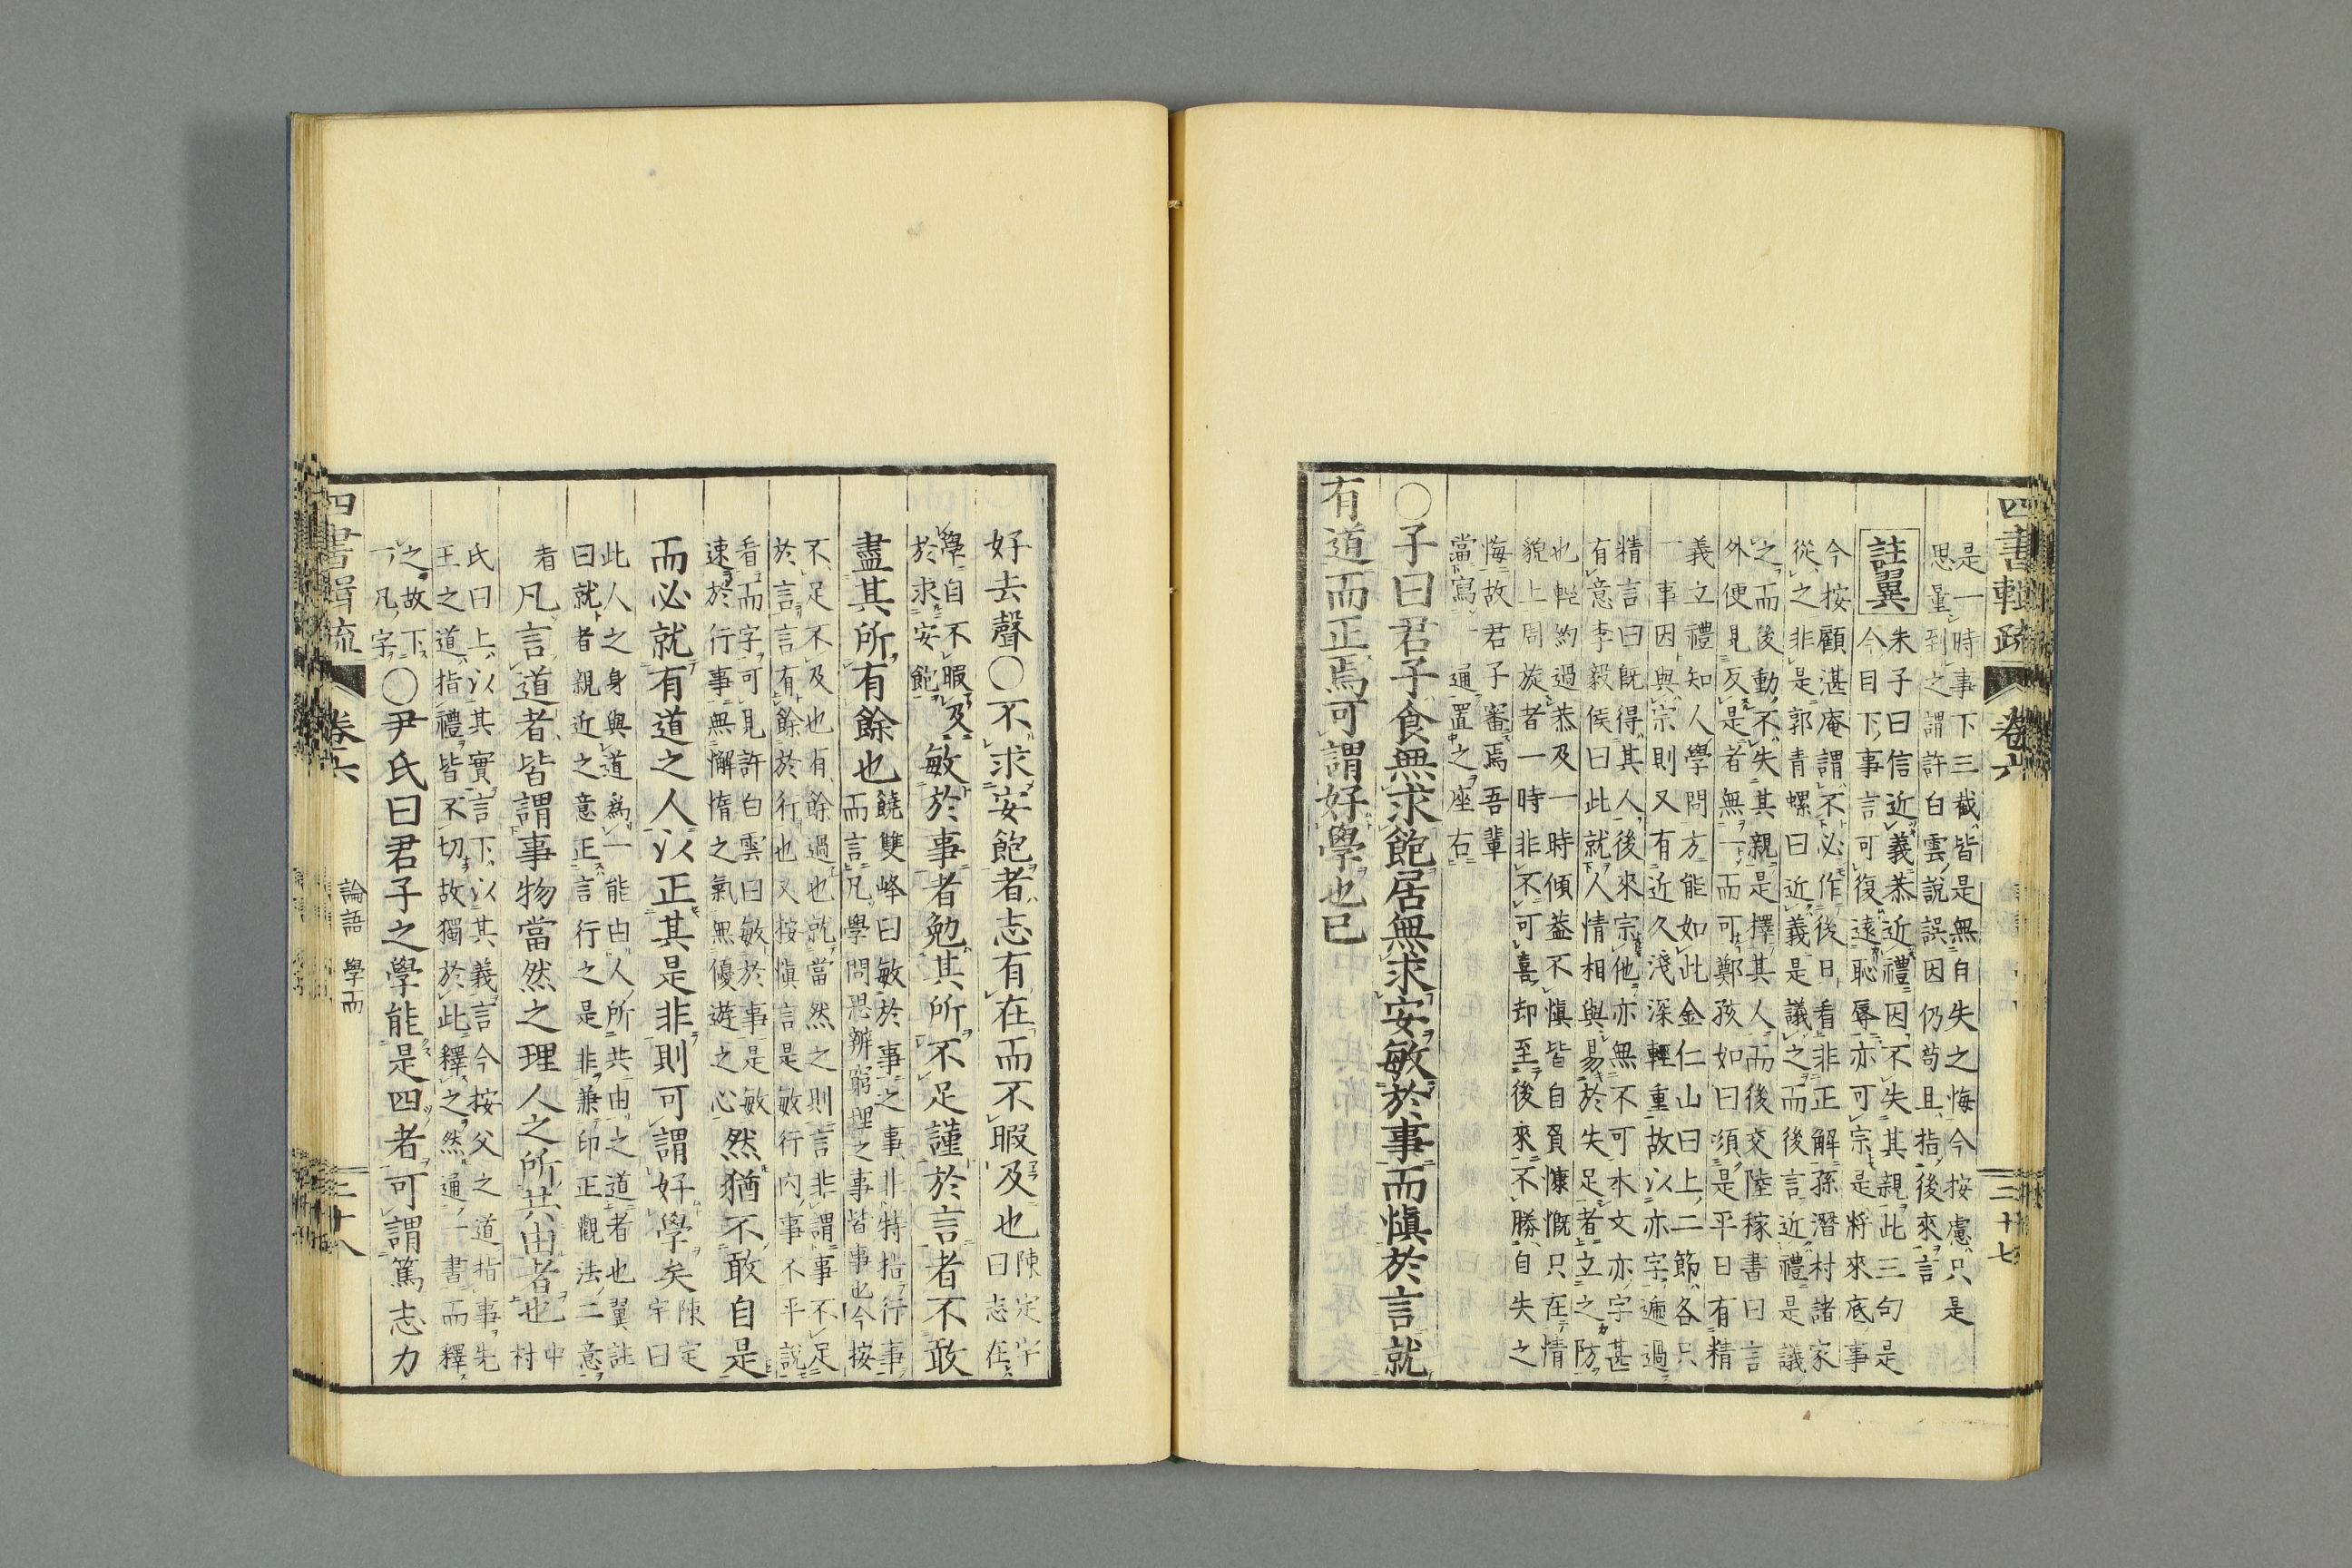 四書輯疏
卷六
三十七
是一時事下三截皆是無自失之悔今按慮只是
思量到之謂許白雲說誤因仍苟且指後來言
註翼
朱子曰信近義恭近禮因不失其親此三句是
今目下事言可復遠恥辱亦可宗是將來底事
今按顧湛庵謂不必作後日看非正解孫潛村諸家
從之非是郭青螺曰近義是議之而後言近禮是議
之而後動不失其親是擇其人而後交陸稼書曰言
外便見反是者無一而可鄭孩如曰須是平日有精
義立禮知人學問方能如此金仁山曰上二節各只
一事因與宗則又有近久淺深輕重故以亦字遍過
精言曰旣得其人後來宗他亦無不可本文亦字甚
有意李毅侯曰此就人情相與易於失足者立之防
也輕約過恭及一時傾蓋不愼皆自負慷慨只在情
貌上周旋者一時非不可喜却至後來不勝自失之
悔故君子審焉吾輩
當寫一通置之座右
○子曰君子食無求飽居無求安敏於事而愼於言就
有道而正焉可謂好學也已
好去聲○不求安飽者志有在而不暇及也
陳定宇
曰志在
學自不暇及
於求安飽
敏於事者勉其所不足謹於言者不敢
盡其所有餘也
饒雙峰曰敏於事之事非特指行事
而言凡學問思辨窮理之事皆事也今按
不足不及也有餘過也就當然之則言非謂事不足
於言言有餘於行也又按愼言是敏行內事不平說
看而字可見許白雲曰敏於事是敏
速於行事無懈惰之氣無優遊之心
然猶不敢自是
而必就有道之人以正其是非則可謂好學矣
陳定
宇曰
此人之身與道爲一能由人所共由之道者也翼註
曰就者親近之意正言行之是非兼印正觀法二意
者
凡言道者皆謂事物當然之理人之所共由者也
中
村
氏曰上以其實言下以其義言今按父之道指事先
王之道指禮皆不切故獨於此釋之然通一書而釋
之故下
一凡字
○尹氏曰君子之學能是四者可謂篤志力
四書輯疏
卷六
論語 學而
三十八